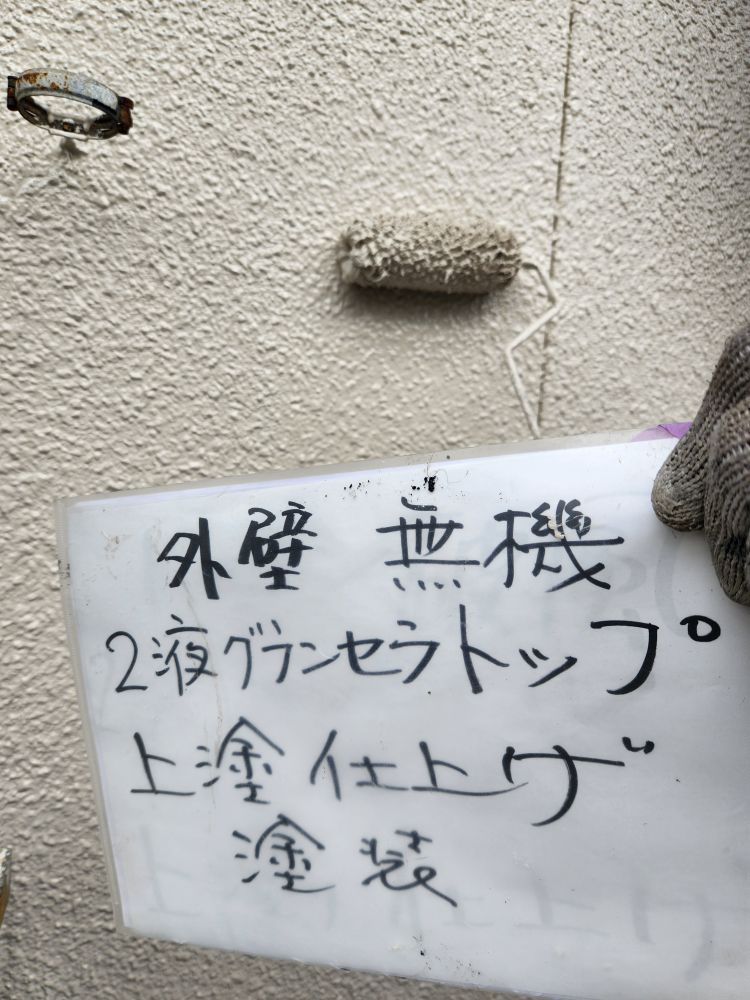 外壁 無機
2液グランセラトップ
上塗仕上げ
塗装